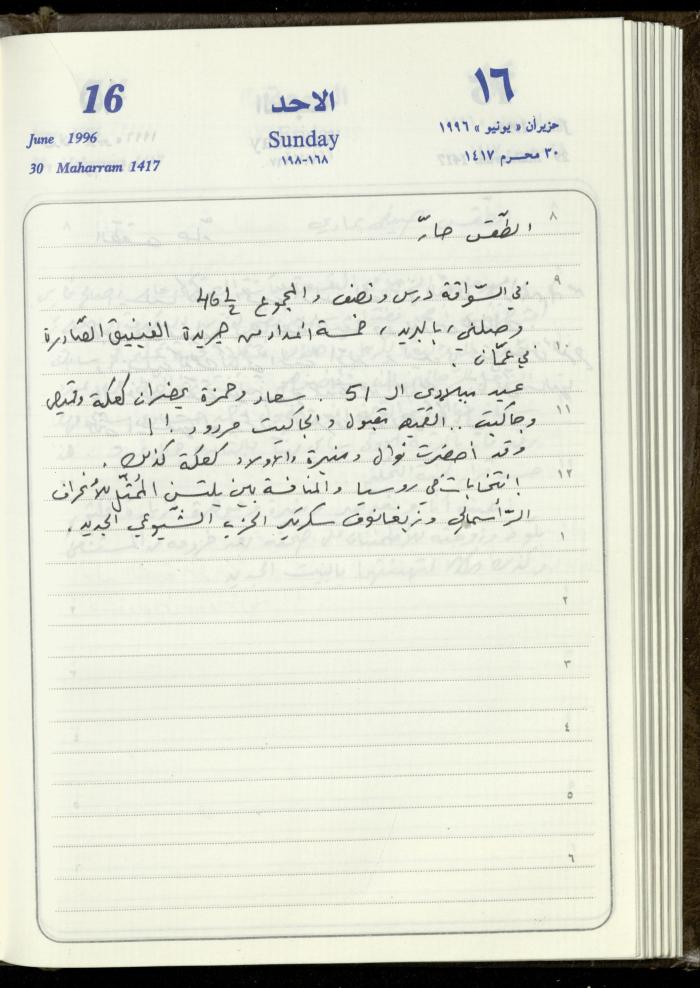 16
الاحد
١٦
June 1996
Sunday
حزيران « يونيو » ١٩٩٦
30 Maharram 1417
١٩٨-١٦٨
٣٠ محرم ١٤١٧
٨
الطّقس حارّ
٩
في السّواقة درس ونصف والمجموع 46 1/2
وصلني، بالبريد، خمسة اعداد من جريدة الفينيق الصّادرة
١٠
في عمّان.
عيد ميلادي الـ 51. سعاد وحمزة يحضران كعكة وقميص
١١
وجاكيت .. القميص مقبول والجاكيت مردود !!
وقد أحضرت نوال ومنيرة والأولاد كعكة كذلك.
١٢
انتخابات في روسيا والمنافسة بين يلتسن الممثّل للأنحراف
الرّأسمالي وزيغانوف سكرتير الحزب الشّيوعي الجديد.
١
٢
٣
٤
٥
٦